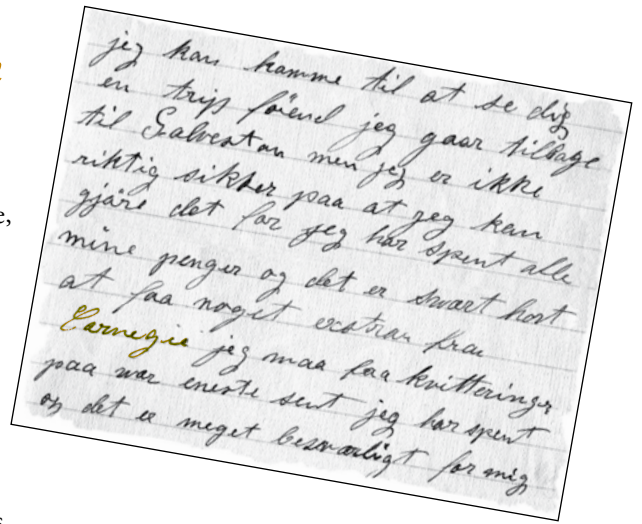 jeg kan komme til at se dig
en trip förend jeg gaar tilbage
til Galveston men jeg er ikke
riktig sikker paa at jeg kan
gjöre det for jeg har spent alle
mine penger og det er svart hort
at faa noget exstrar fra
Carnegie jeg maa faa kvitteringer
paa vær eneste sent jeg har spent
og det er meget besværligt for mig
e,